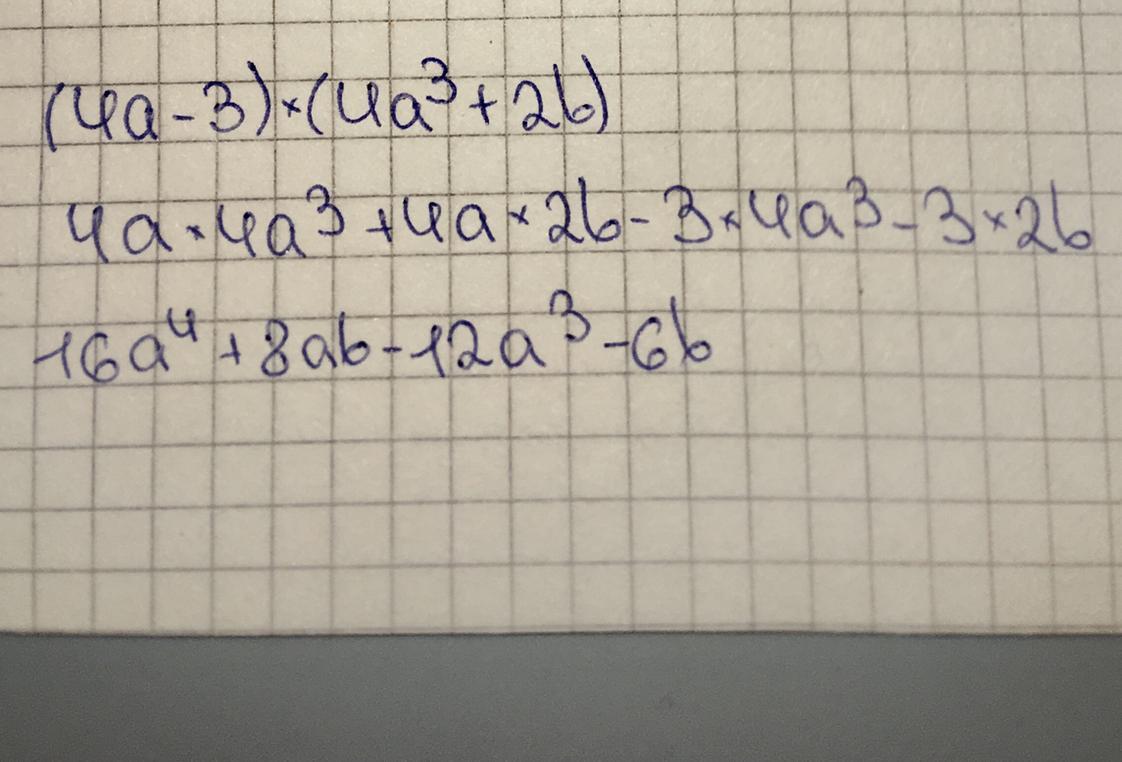 (4a-3)×(4a³+2b)
4a×4a³+4a×2b-3×4a³-3×2b
16a⁴+8ab-12a³-6b